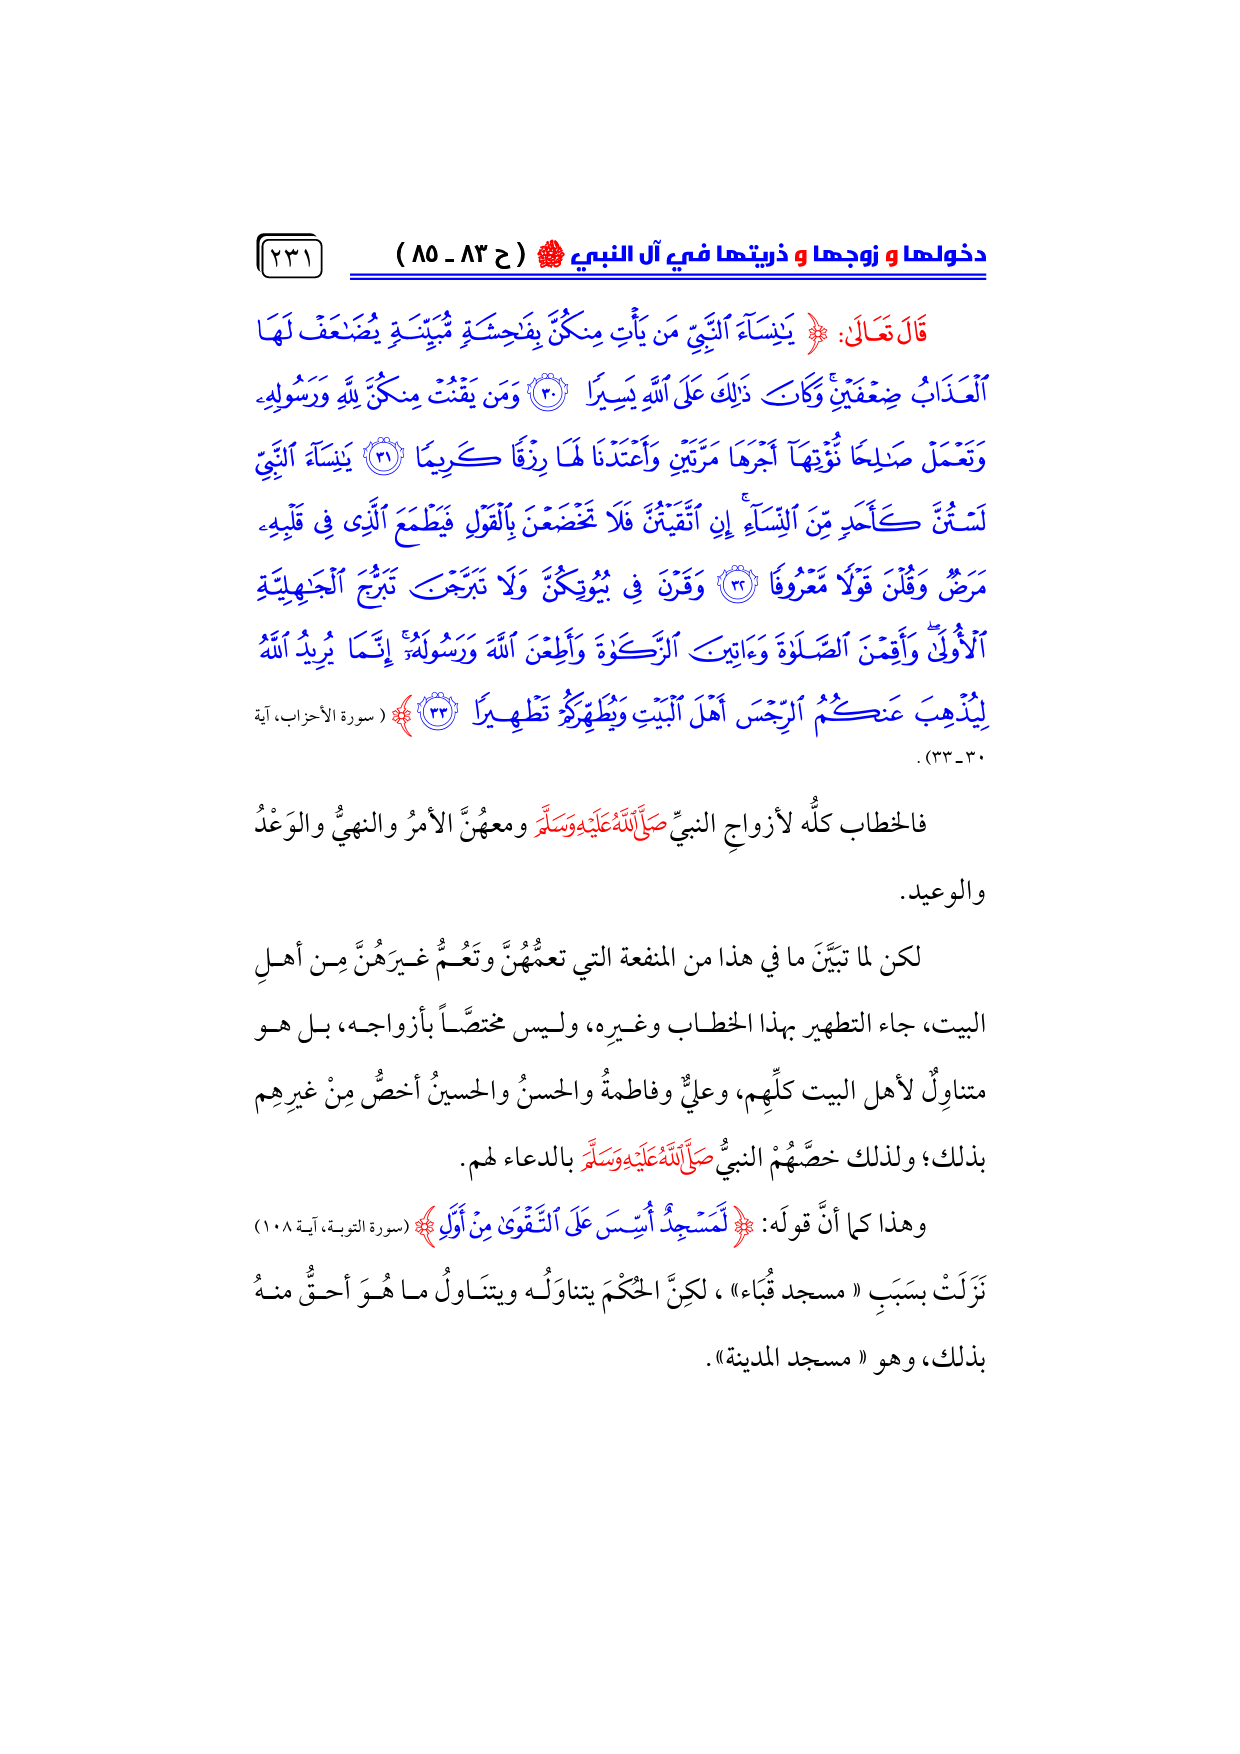 دخولها و زوجها و ذريتها في آل النبي ﷺ ( ح ٨٣ ـ ٨٥ ) ٢٣١
قَالَ تَعَالَىٰ: ﴿ يَٰنِسَآءَ ٱلنَّبِيِّ مَن يَأۡتِ مِنكُنَّ بِفَٰحِشَةٖ مُّبَيِّنَةٖ يُضَٰعَفۡ لَهَا
ٱلۡعَذَابُ ضِعۡفَيۡنِۚ وَكَانَ ذَٰلِكَ عَلَى ٱللَّهِ يَسِيرٗا ٣٠ وَمَن يَقۡنُتۡ مِنكُنَّ لِلَّهِ وَرَسُولِهِۦ
وَتَعۡمَلۡ صَٰلِحٗا نُّؤۡتِهَآ أَجۡرَهَا مَرَّتَيۡنِ وَأَعۡتَدۡنَا لَهَا رِزۡقٗا كَرِيمٗا ٣١ يَٰنِسَآءَ ٱلنَّبِيِّ
لَسۡتُنَّ كَأَحَدٖ مِّنَ ٱلنِّسَآءِۚ إِنِ ٱتَّقَيۡتُنَّ فَلَا تَخۡضَعۡنَ بِٱلۡقَوۡلِ فَيَطۡمَعَ ٱلَّذِي فِي قَلۡبِهِۦ
مَرَضٞ وَقُلۡنَ قَوۡلٗا مَّعۡرُوفٗا ٣٢ وَقَرۡنَ فِي بُيُوتِكُنَّ وَلَا تَبَرَّجۡنَ تَبَرُّجَ ٱلۡجَٰهِلِيَّةِ
ٱلۡأُولَىٰۖ وَأَقِمۡنَ ٱلصَّلَوٰةَ وَءَاتِينَ ٱلزَّكَوٰةَ وَأَطِعۡنَ ٱللَّهَ وَرَسُولَهُۥٓۚ إِنَّمَا يُرِيدُ ٱللَّهُ
لِيُذۡهِبَ عَنكُمُ ٱلرِّجۡسَ أَهۡلَ ٱلۡبَيۡتِ وَيُطَهِّرَكُمۡ تَطۡهِيرٗا ٣٣ ﴾ ( سورة الأحزاب، آية
٣٠ـ٣٣) .
فالخطاب كلُّه لأزواجِ النبيِّ صَلَّى اللَّهُ عَلَيْهِ وَسَلَّمَ ومعهُنَّ الأمرُ والنهيُّ والوَعْدُ
والوعيد.
لكن لما تبَيَّنَ ما في هذا من المنفعة التي تعمُّهُنَّ وتَعُمُّ غيرَهُنَّ مِن أهلِ
البيت، جاء التطهير بهذا الخطاب وغيرِه، وليس مختصَّاً بأزواجه، بل هو
متناوِلٌ لأهل البيت كلِّهِم، وعليٌّ وفاطمةُ والحسنُ والحسينُ أخصُّ مِنْ غيرِهِم
بذلك؛ ولذلك خصَّهُمْ النبيُّ صَلَّى اللَّهُ عَلَيْهِ وَسَلَّمَ بالدعاء لهم.
وهذا كما أنَّ قولَه: ﴿ لَّمَسۡجِدٌ أُسِّسَ عَلَى ٱلتَّقۡوَىٰ مِنۡ أَوَّلِ ﴾ (سورة التوبة، آية ١٠٨)
نَزَلَتْ بسَبَبِ « مسجد قُبَاء» ، لكِنَّ الحُكْمَ يتناوَلُه ويتنَاولُ ما هُوَ أحقُّ منهُ
بذلك، وهو « مسجد المدينة».